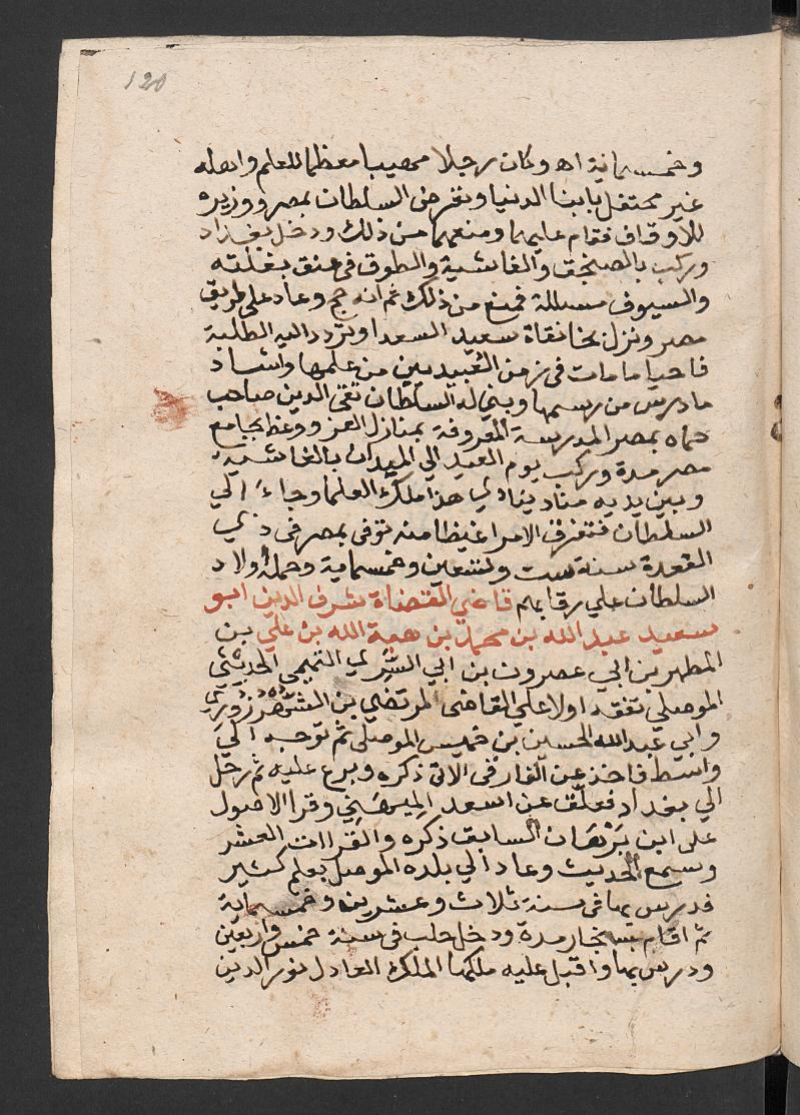 120
وخمسماية اه وكان رجلا مهيبا معظما للعلم واهله
غير محتفل بابنا الدنيا وتعرض السلطان بمصر ووزيره
للاوقاف فقام عليهما ومنعهما من ذلك ودخل بغداد
وركب بالصنجق والغاشية والطوق في عنق بغلته
والسيوف مسللة فمنع من ذلك ثم انه حج وعاد على طريق
مصر ونزل بخانقاة سعيد السعدا وتردد اليه الطلبة
فاحيا ما مات في زمن العبيديين من علمها واشاد
ما درس من رسمها وبنى له السلطان تقي الدين صاحب
حماه بمصر المدرسة المعروفة بمنازل العز ووعظ بجامع
مصر مدة وركب يوم العيد الي الميدان بالغاشية
وبين يديه مناد ينادي هذا ملك العلما وجاء الي
السلطان فتفرق الامرا غيظا منه توفى بمصر في ذي
القعدة سنة ست وتسعين وخمسماية وحمله اولاد
السلطان علي رقابهم قاضي القضاة شرف الدين ابو
سعيد عبد الله بن محمد بن هبة الله بن علي بن
المطهر بن ابي عصرون بن ابي السري التميمي الحديثي
الموصلي تفقه اولا علي القاضى المرتضي بن الشهرزوري
وابي عبد الله الحسين بن خميس الموصلى ثم توجه الي
واسط فاخذ عن الفارقى الاتى ذكره وبرع عليه ثم رحل
الي بغداد فعلق عن اسعد الميهني وقرا الاصول
على ابن برهان السابق ذكره والقراات العشر
وسمع الحديث وعاد الي بلده الموصل بعلم كثير
فدرس بها فى سنة ثلاث وعشرين وخمسماية
ثم اقام بسنجار مدة ودخل حلب فى سنة خمس واربعين
ودرس بها واقبل عليه ملكها الملك العادل نور الدين